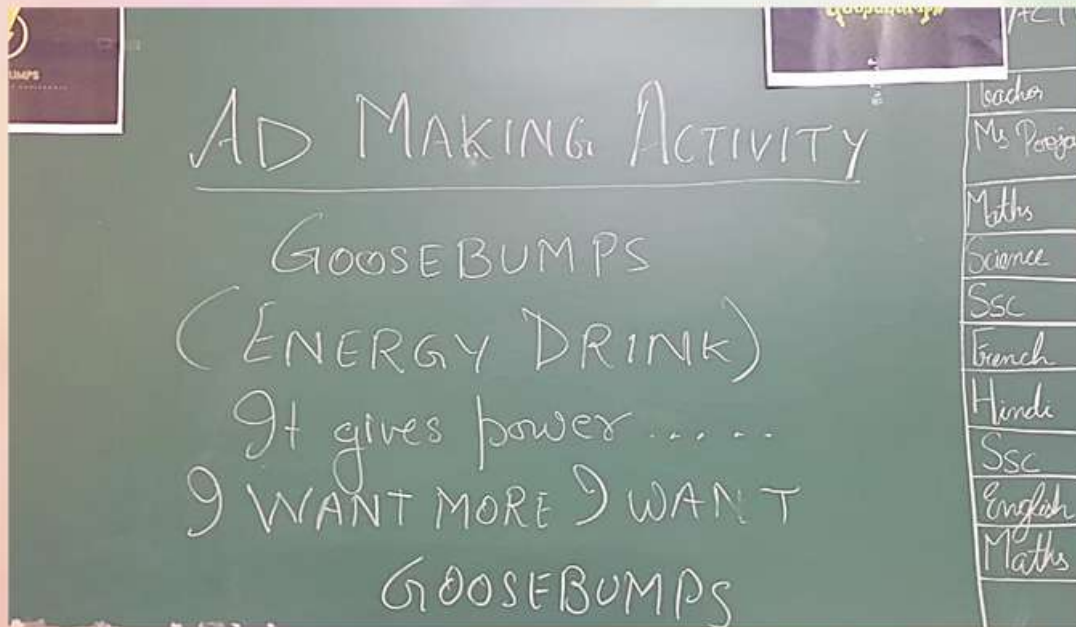 AD MAKING ACTIVITY
GOOSEBUMPS
(ENERGY DRINK)
It gives power.....
I WANT MORE I WANT
GOOSEBUMPS
UMPS
Teacher
Ms Pooja
Maths
Science
SSC
French
Hindi
SSC
English
Maths